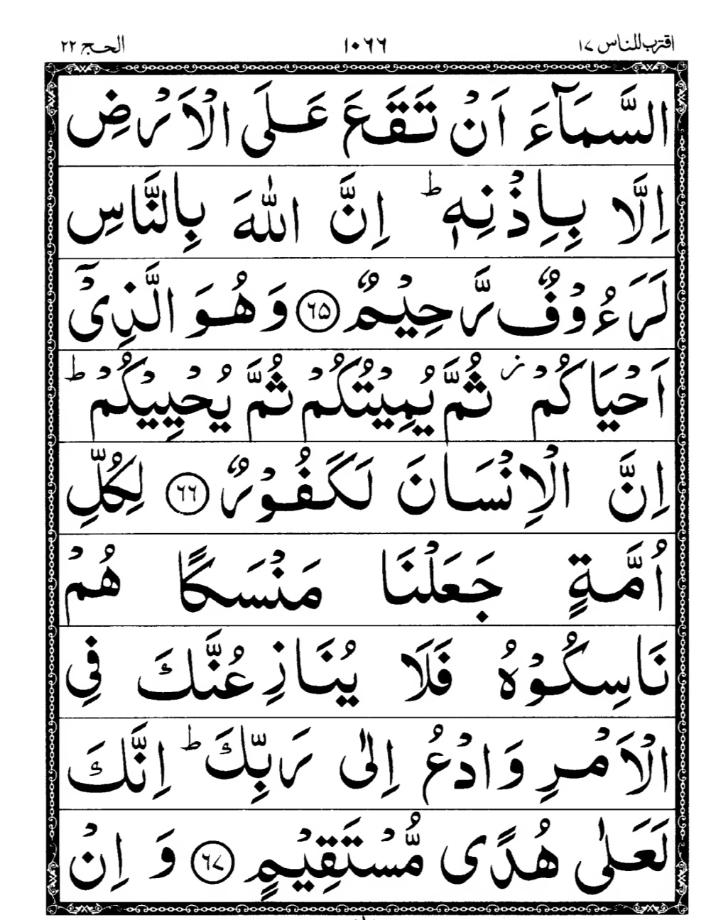 اقترب للناس ١٧ ١٠٦٦ الحج ٢٢
السَّمَآءَ اَنْ تَقَعَ عَلَى الْاَرْضِ
اِلَّا بِاِذْنِهٖ ؕ اِنَّ اللّٰهَ بِالنَّاسِ
لَرَءُوْفٌ رَّحِيْمٌ ﴿٦٥﴾ وَهُوَ الَّذِىْٓ
اَحْيَاكُمْ ؗ ثُمَّ يُمِيْتُكُمْ ثُمَّ يُحْيِيْكُمْ ؕ
اِنَّ الْاِنْسَانَ لَكَفُوْرٌ ﴿٦٦﴾ لِكُلِّ
اُمَّةٍ جَعَلْنَا مَنْسَكًا هُمْ
نَاسِكُوْهُ فَلَا يُنَازِعُنَّكَ فِى
الْاَمْرِ وَادْعُ اِلٰى رَبِّكَ ؕ اِنَّكَ
لَعَلٰى هُدًى مُّسْتَقِيْمٍ ﴿٦٧﴾ وَ اِنْ